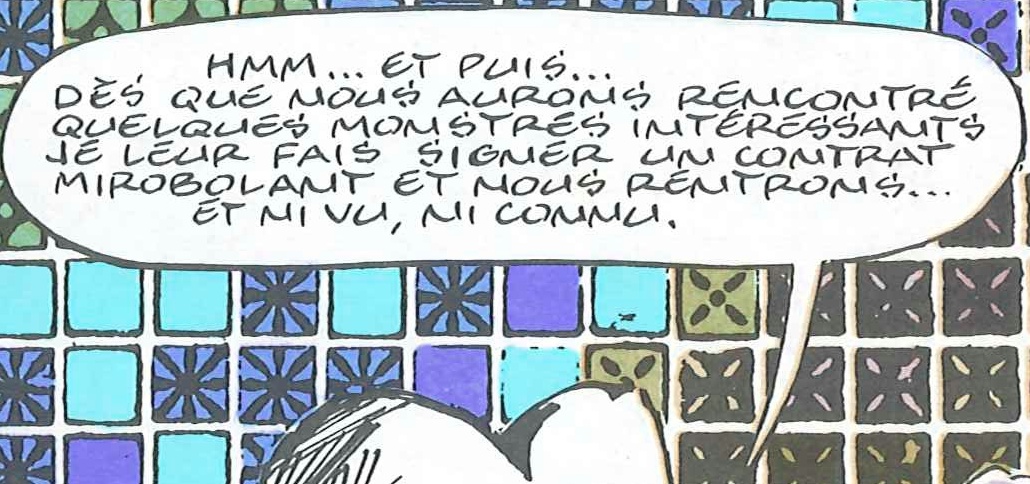 HMM... ET PUIS...
DÈS QUE NOUS AURONS RENCONTRÉ
QUELQUES MONSTRES INTÉRESSANTS
JE LEUR FAIS SIGNER UN CONTRAT
MIROBOLANT ET NOUS RENTRONS...
ET NI VU, NI CONNU.